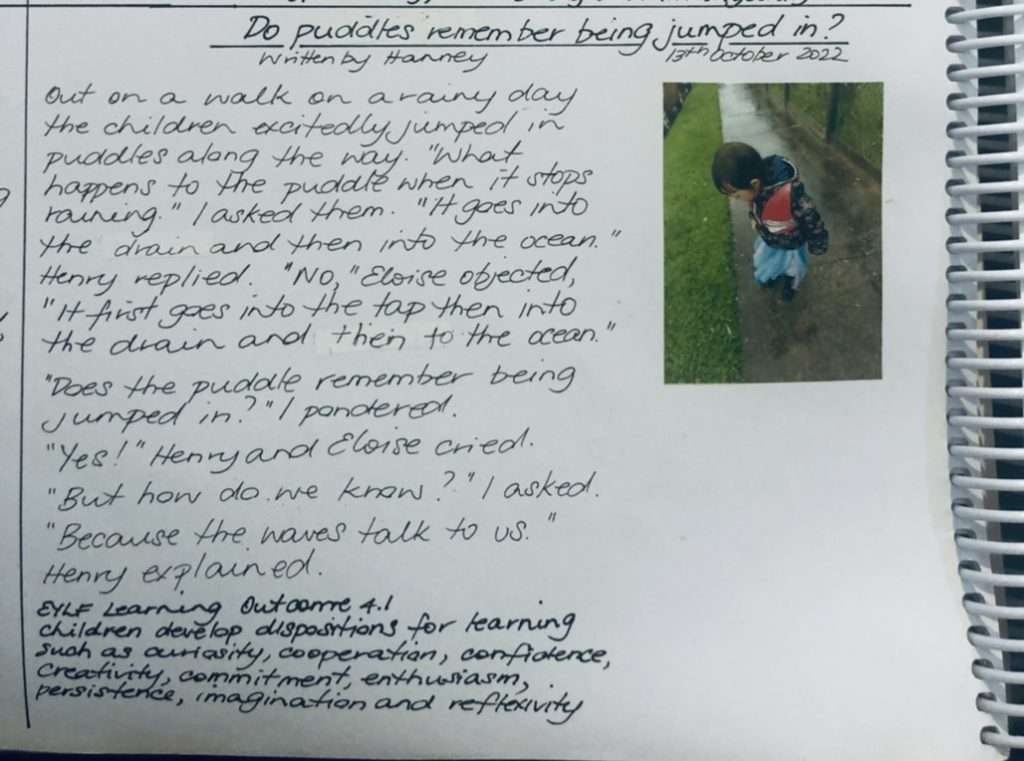 Do puddles remember being jumped in?
Written by Hanney
13th October 2022
Out on a walk on a rainy day
the children excitedly jumped in
puddles along the way. "What
happens to the puddle when it stops
raining." I asked them. "It goes into
the drain and then into the ocean."
Henry replied. "No," Eloise objected,
"It first goes into the tap then into
the drain and then to the ocean."
"Does the puddle remember being
jumped in?" I pondered.
"Yes!" Henry and Eloise cried.
"But how do we know?" I asked.
"Because the waves talk to us."
Henry explained.
EYLF Learning Outcome 4.1
children develop dispositions for learning
such as curiosity, cooperation, confidence,
creativity, commitment, enthusiasm,
persistence, imagination and reflexivity